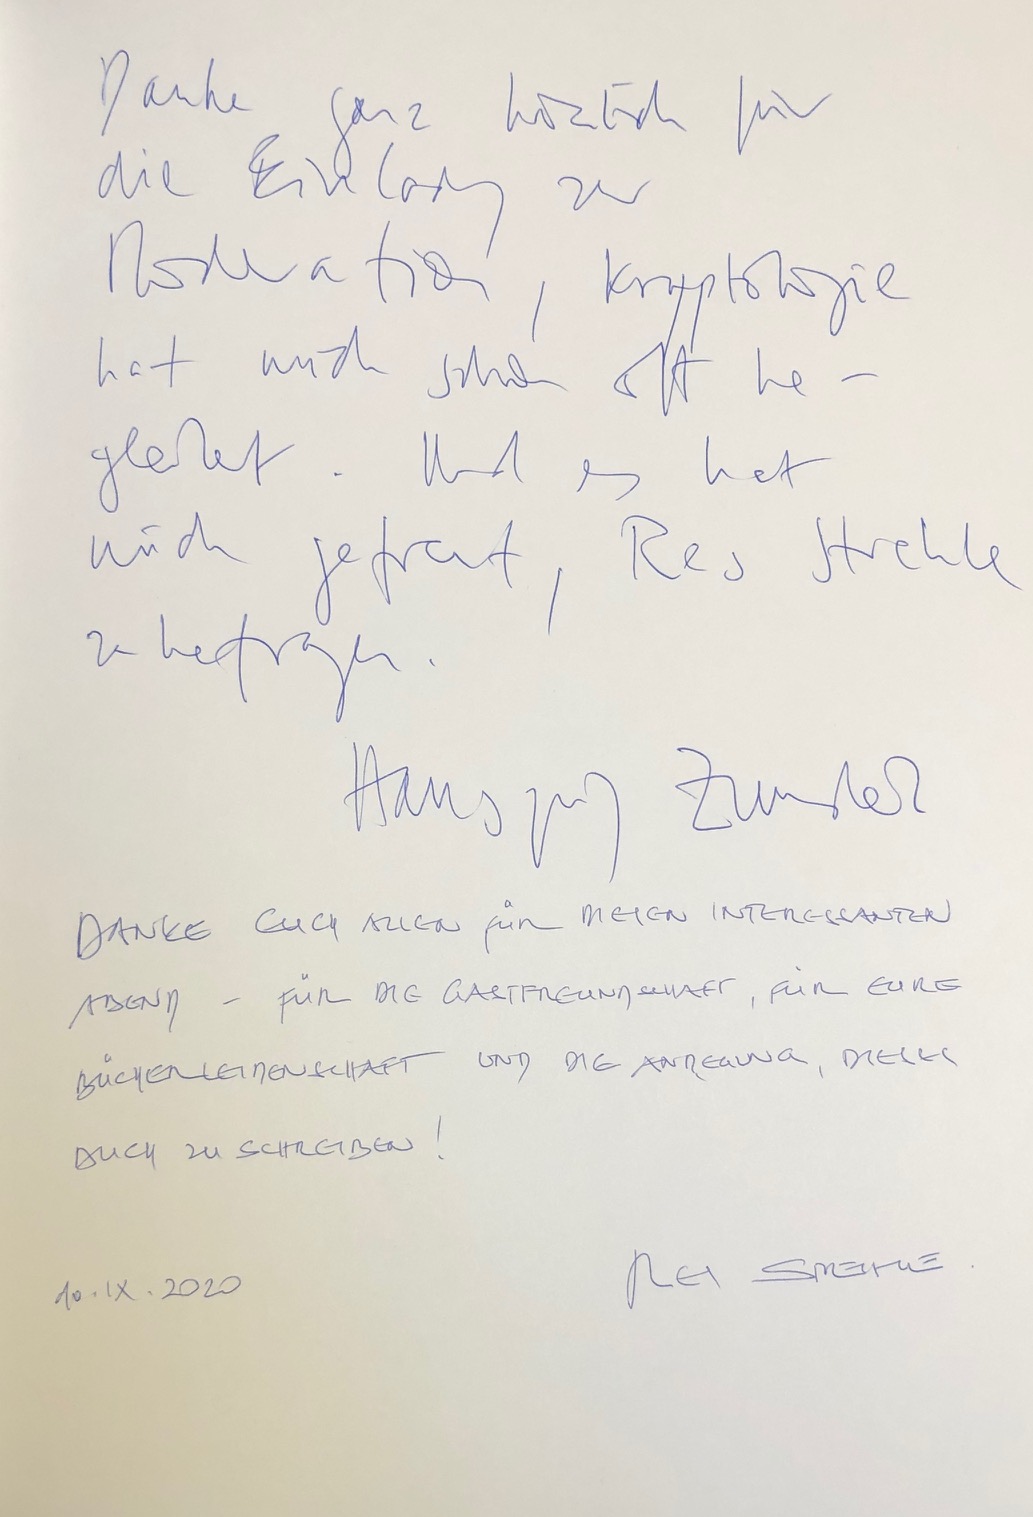 Danke ganz herzlich für
die Einladung zur
Moderation, Kryptologie
hat mich schon oft be-
gleitet. Und es hat
mich gefreut, Res Strehle
zu befragen.
Hansjürg Zumstein
DANKE EUCH ALLEN FÜR DIESEN INTERESSANTEN
ABEND – FÜR DIE GASTFREUNDSCHAFT, FÜR EURE
BÜCHERLEIDENSCHAFT UND DIE ANREGUNG, DIESES
BUCH ZU SCHREIBEN!
RES STREHLE.
10.IX.2020